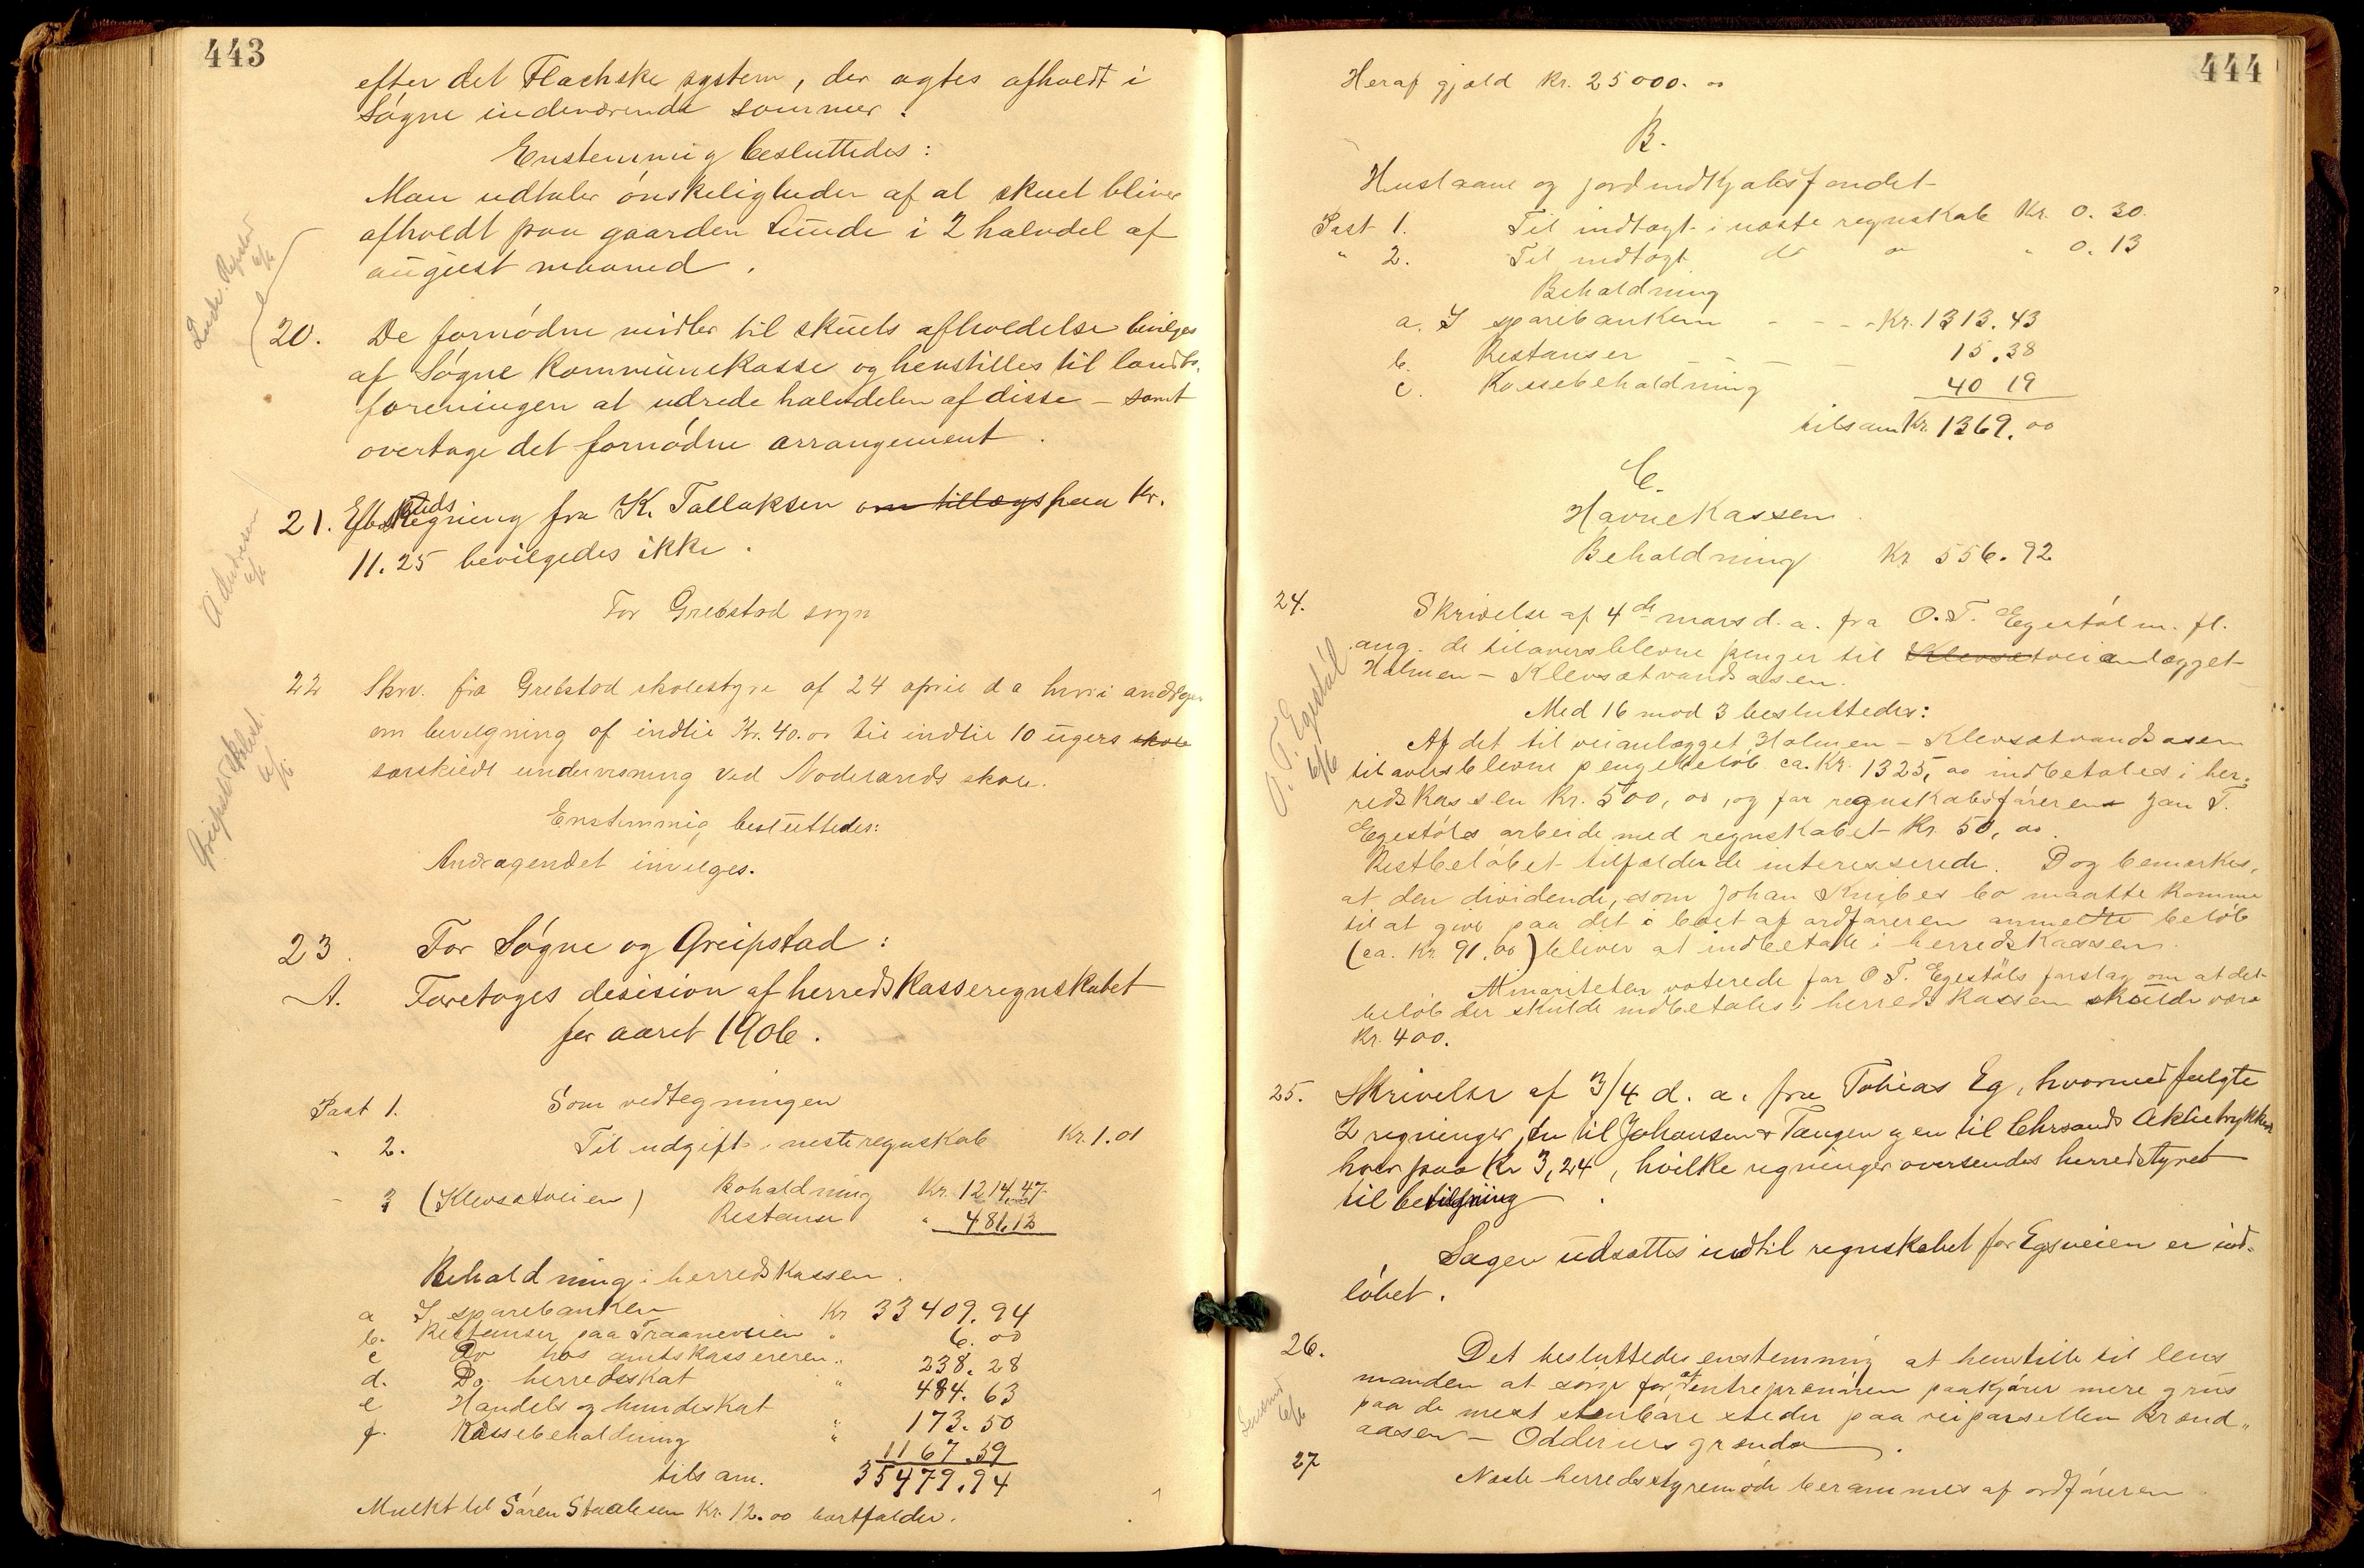 443
efter det Flachske system, der agtes afholdt i
Søgne indeværende sommer.
Enstemmig besluttedes:
Man udtaler ønskeligheden af at skuet bliver
afholdt paa gaarden Lunde i 2 halvdel af
august maaned.
20. De fornødne midler til skuets afholdelse bevilges
af Søgne kommunekasse og henstilles til landbr.
foreningen at udrede halvdelen af disse – samt
overtage det fornødne arrangement.
21. Efterskuds Regning fra K. Tallaksen om tillægs paa kr.
11.25 bevilgedes ikke.
A. Andresen
6/6
For Grebstad sogn
22 Skriv. fra Grebstad skolestyre af 24 april d a hvori andrages
om bevilgning af indtil Kr. 40.00 til indtil 10 ugers skole
særskildt undervisning ved Nodelands skole.
Enstemmig besluttedes:
Andragendet invilges.
Greipstad skolest.
6/6
23. For Søgne og Greipstad:
A. Foretages desision af herredskasseregnskabet
for aaret 1906.
Post 1. Som vedtegningen
" 2. Til udgift i neste regnskab Kr. 1.01
" 3 (Klevsætveien) Beholdning Kr. 1214.47
Restanse " 481.12
Beholdning i herredskassen.
a I sparebanken Kr 33409.94
b. Restanser paa Traaneveien " 6.00
c Do hos amtskassereren " 238.28
d. Do. herredsskat " 484.63
e Handels og hundeskat " 173.50
f. Kassebeholdning " 1167.59
tilsam. 35479.94
Mulkt til Søren Staalesen Kr. 12.00 bortfalder.
444
Heraf gjæld kr. 25000.00
B.
Huslaane og jordindkjøbsfondet
Post 1. Til indtægt i næste regnskab Kr. 0.30.
" 2. Til indtægt do " " 0.13
Beholdning
a. I sparebanken - - - Kr. 1313.43
b. Restanser 15.38
c. Kassebeholdning 40 19
tilsam Kr. 1369.00
C.
Havnekassen
Beholdning Kr 556.92
24. Skrivelse af 4de mars d. a. fra O. T. Egestøl m. fl.
ang. de tiloversblevne penger til Klevsætveianlægget
Holmen – Klevsætvandsåsen.
O. T. Egestøl
6/6
Med 16 mod 3 besluttedes:
Af det til veianlægget Holmen – Klevsætvandsåsen
tiloversblevne pengebeløb ca. Kr. 1325,00 indbetales i her-
redskassen Kr. 500,00, og for regnskabsføreren Jan T.
Egestøls arbeide med regnskabet Kr. 50,00.
Restbeløbet tilfalder de interesserede. Dog bemærkes,
at den dividende, som Johan Knibes bo maatte komme
til at give paa det i boet af ordføreren anmeldte beløb
(ca. Kr. 91.00) bliver at indbetale i herredskassen.
Minoriteten voterede for O T. Egestøls forslag om at det
beløb der skulde indbetales i herredskassen skulde være
Kr. 400.
25. Skrivelse af 3/4 d. a. fra Tobias Eg, hvormed fulgte
2 regninger, en til Johansen & Tangen og en til Chrsands Aktietrykkeri
hver paa Kr 3,24, hvilke regninger oversendes herredstyret
til bevilgning.
Sagen udsættes indtil regnskabet for Egsveien er ind-
løbet.
26. Det besluttedes enstemmig at henstille til lens
manden at sørge for at entreprenøren paakjører mere grus
paa de mest stenbare steder paa veiparsellen Brand-
aasen – Oddernes grændse.
Lensmd
6/6
27 Næste herredsstyremøde berammes af ordføreren.